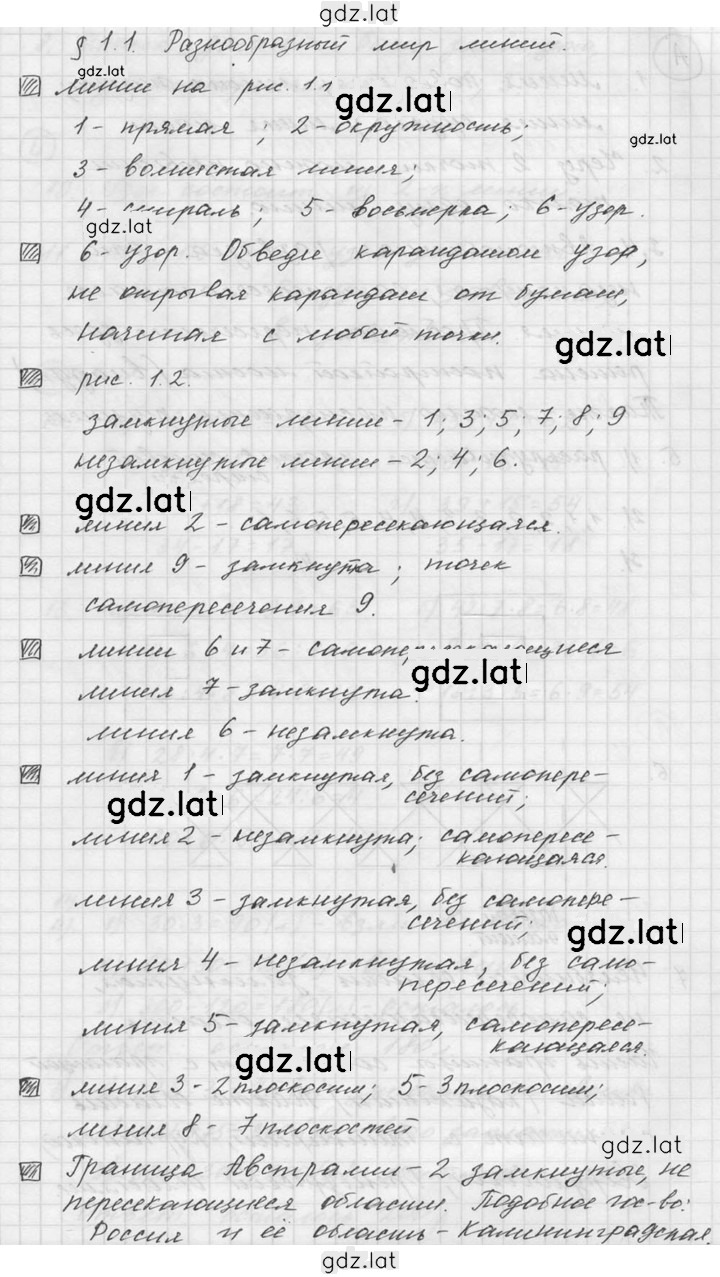 gdz.lat
§ 1.1. Разнообразный мир линий.
gdz.lat
линии на рис. 1.1
gdz.lat
1 - прямая ; 2 - окружность;
gdz.lat
3 - волнистая линия;
4 - спираль ; 5 - восьмерка ; 6 - узор.
gdz.lat
6 - узор. Обведи карандашом узор,
не отрывая карандаш от бумаги,
начиная с любой точки.
gdz.lat
рис. 1.2.
замкнутые линии - 1; 3; 5; 7; 8; 9
незамкнутые линии - 2; 4; 6.
gdz.lat
линия 2 - самопересекающаяся.
линия 9 - замкнута ; точек
самопересечения 9.
линии 6 и 7 - самопересекающиеся
gdz.lat
линия 7 - замкнута.
линия 6 - незамкнута.
линия 1 - замкнутая, без самопере-
сечений;
gdz.lat
линия 2 - незамкнута; самопересе-
кающаяся.
линия 3 - замкнутая, без самопере-
сечений;
gdz.lat
линия 4 - незамкнутая, без само-
пересечений;
линия 5 - замкнутая, самопересе-
кающаяся.
gdz.lat
линия 3 - 2 плоскости; 5 - 3 плоскости;
линия 8 - 7 плоскостей
gdz.lat
Граница Австралии - 2 замкнутые, не
пересекающиеся области. Подобное гос-во:
Россия и её область - Калининградская.
gdz.lat